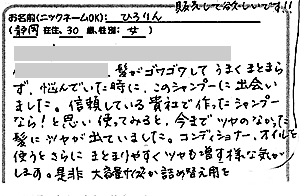 販売して欲しいです!!
お名前(ニックネームOK): ひろりん
(静岡 在住、30 歳、性別: 女 )
髪がゴワゴワしてうまくまとまら
ず、悩んでいた時に、このシャンプーに出会い
ました。信頼している貴社で作ったシャンプー
なら!と思い使ってみると、今までツヤのなかった
髪にツヤが出ていました。コンディショナー、オイルを
使うとさらにまとまりやすくツヤも増す様な気が
します。是非 大容量や詰め替え用を